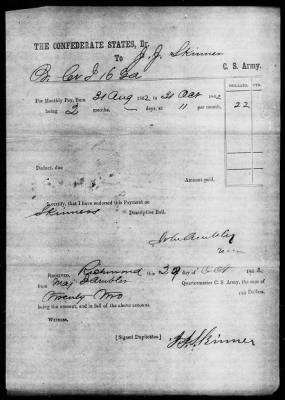 THE CONFEDERATE STATES, Dr.
To J. J. Skinner
Co I 16 Ga
C. S. Army.
DOLLARS. CTS.
For Monthly Pay, from 31 Aug 1862 to 31 Oct 1862
being 2 months, days, at 11 per month, 22
Deduct, due
Amount paid,
I certify, that I have endorsed this Payment on
Skinners Descriptive Roll.
RECEIVED, Richmond this 29 day of Oct 1862,
from Maj Ambler Quartermaster C. S. Army, the sum of
Twenty Two Dollars.
being the amount, and in full of the above account.
Witness.
[Signed Duplicates.] J. J. Skinner